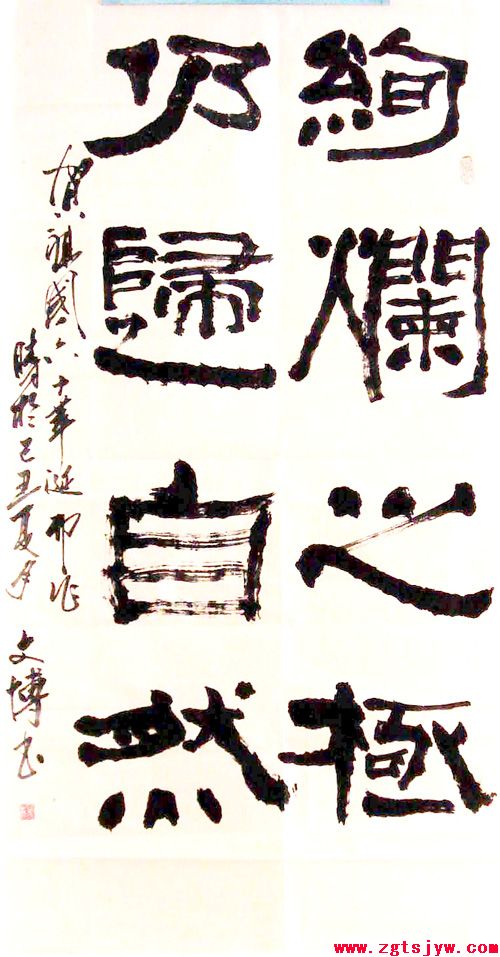 絢爛之極
仍歸自然
賀祖國六十華誕而作
時於己丑夏月 文博书
www.zgtsjyw.com